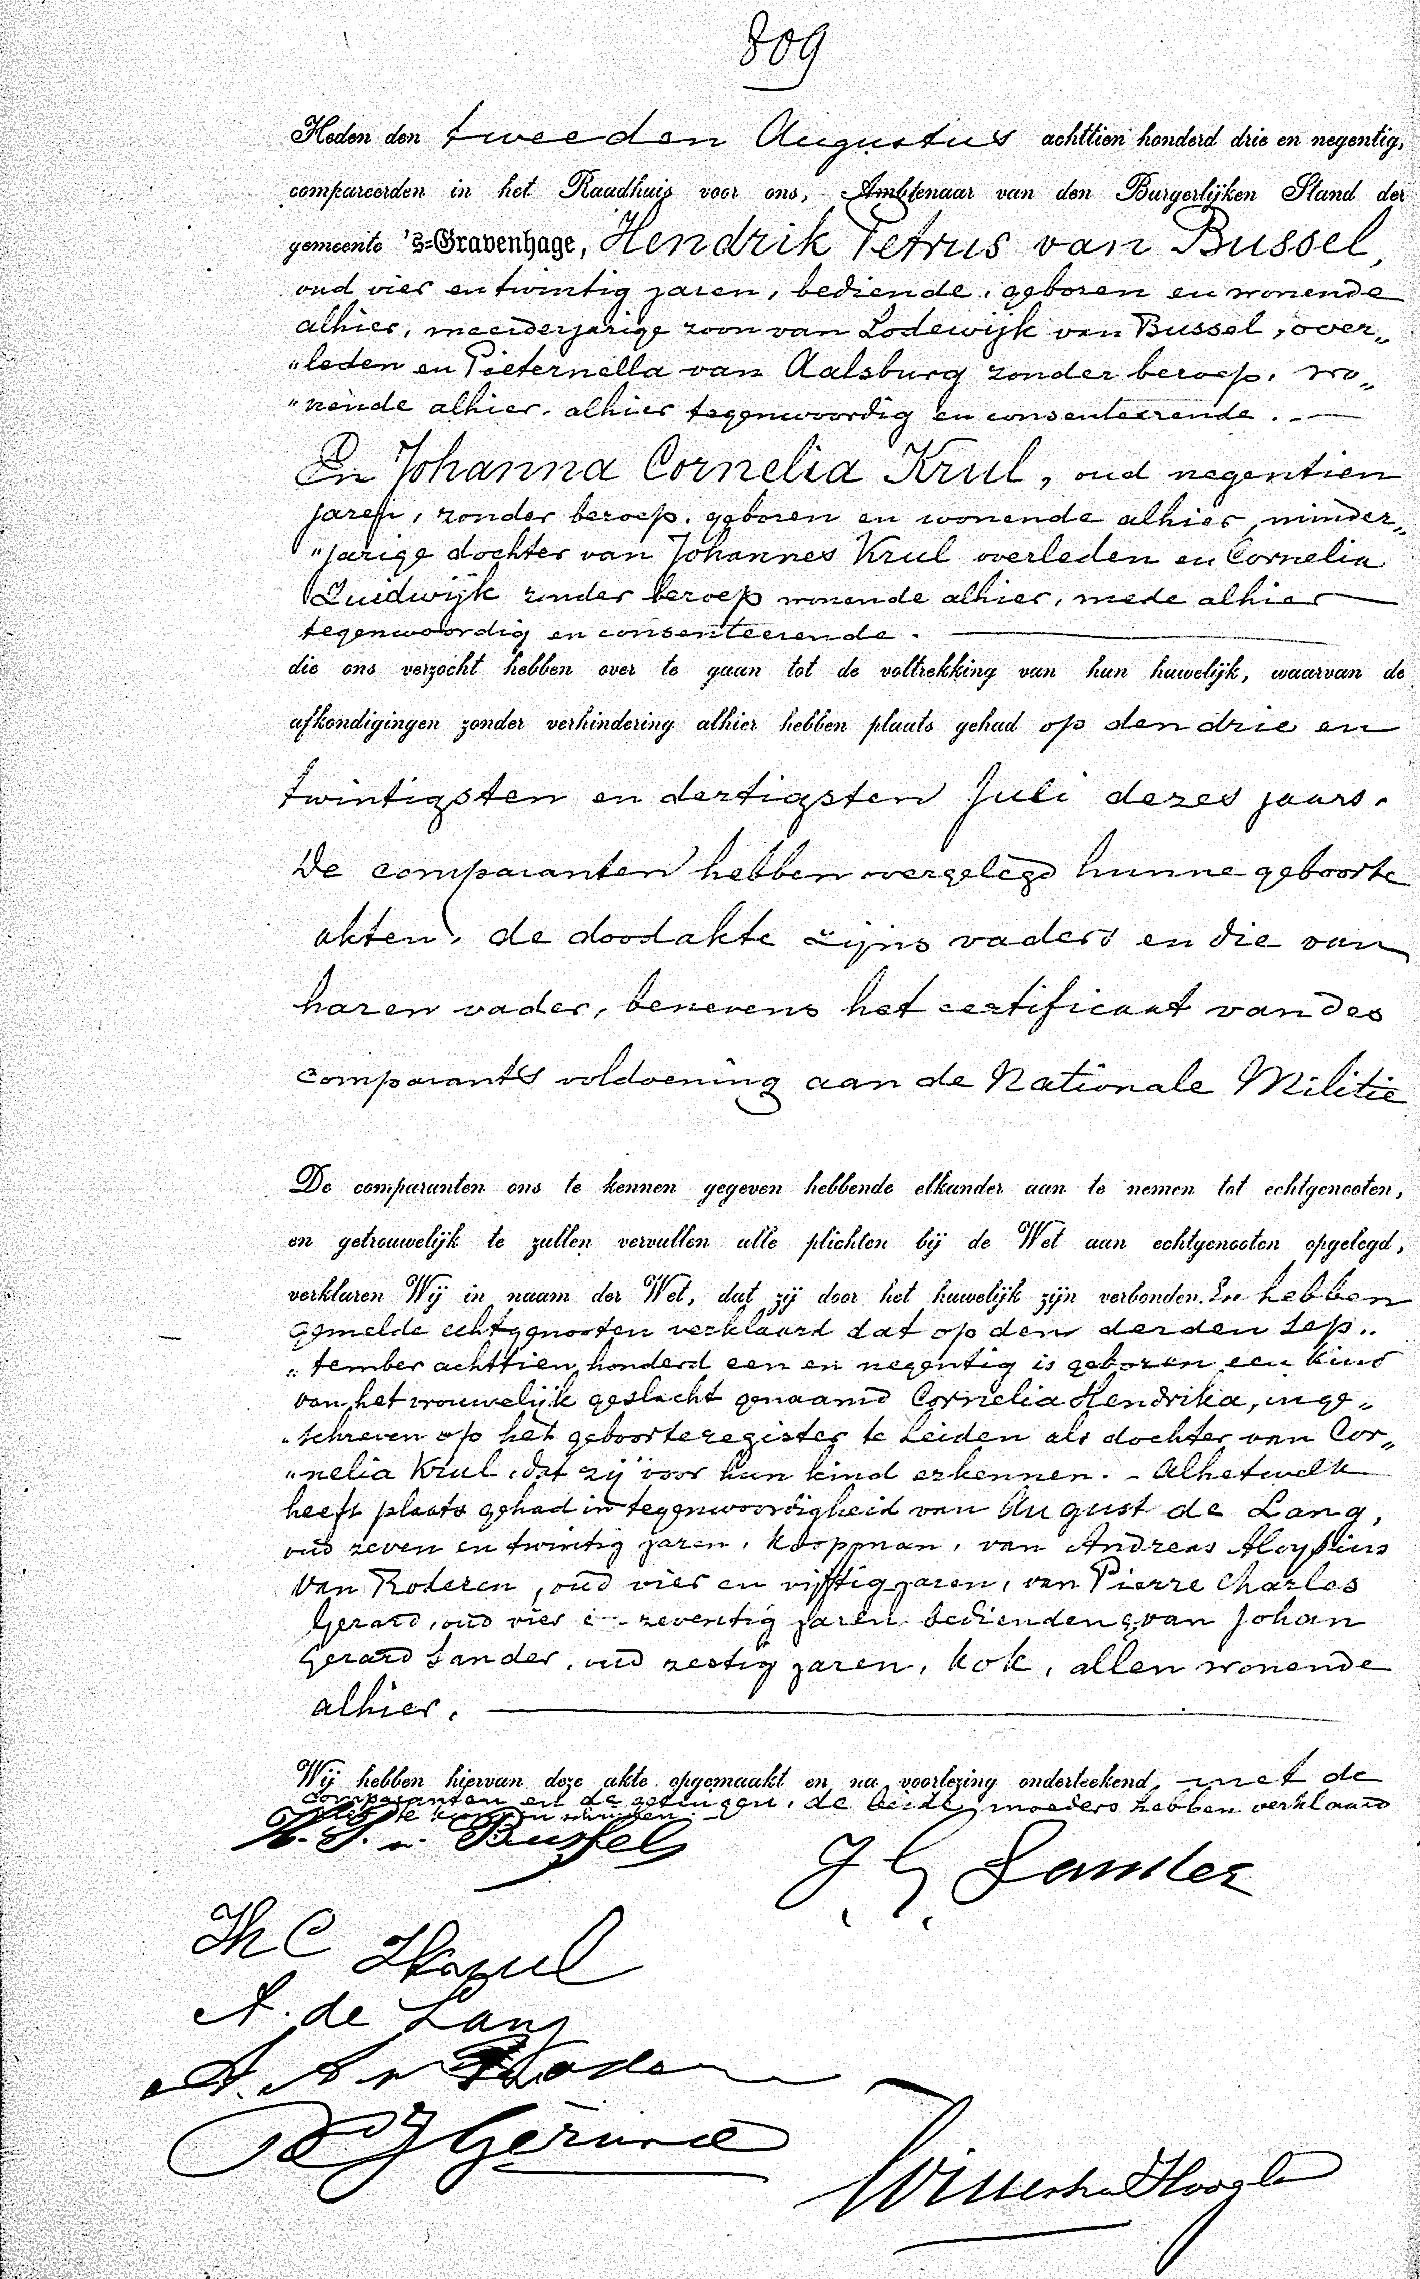 809
Heden den tweeden Augustus achttien honderd drie en negentig,
compareerden in het Raadhuis voor ons, Ambtenaar van den Burgerlijken Stand der
gemeente 's-Gravenhage, Hendrik Petrus van Bussel,
oud vier en twintig jaren, bediende, geboren en wonende
alhier, meerderjarige zoon van Lodewijk van Bussel, over„
„leden en Pieternella van Aalsburg zonder beroep, wo„
„nende alhier, alhier tegenwoordig en consenteerende. —
En Johanna Cornelia Krul, oud negentien
jaren, zonder beroep, geboren en wonende alhier, minder„
„jarige dochter van Johannes Krul overleden en Cornelia
Zuidwijk zonder beroep wonende alhier, mede alhier
tegenwoordig en consenteerende. —
die ons verzocht hebben over te gaan tot de voltrekking van hun huwelijk, waarvan de
afkondigingen zonder verhindering alhier hebben plaats gehad op den drie en
twintigsten en dertigsten Juli dezes jaars.
De comparanten hebben overgelegd hunne geboorte
akten, de doodakte zijns vaders en die van
haren vader, benevens het certificaat van des
comparants voldoening aan de Nationale Militie
De comparanten ons te kennen gegeven hebbende elkander aan te nemen tot echtgenooten,
en getrouwelijk te zullen vervullen alle plichten bij de Wet aan echtgenooten opgelegd,
verklaren Wij in naam der Wet, dat zij door het huwelijk zijn verbonden. En hebben
gemelde echtgenooten verklaard dat op den derden Sep„
„tember achttien honderd een en negentig is geboren een kind
van het vrouwelijk geslacht genaamd Cornelia Hendrika, inge„
„schreven op het geboorteregister te Leiden als dochter van Cor„
„nelia Krul, dat zij voor hun kind erkennen. - Alhetwelk
heeft plaats gehad in tegenwoordigheid van August de Lang,
oud zeven en twintig jaren, koopman, van Andreas Aloysius
van Roderen, oud vier en vijftig jaren, van Pierre Charles
Gerard, oud vier en zeventig jaren bedienden & van Johan
Gerard Sander, oud zestig jaren, kok, allen wonende
alhier. —
Wij hebben hiervan deze akte opgemaakt en na voorlezing onderteekend, met de
comparanten en de getuigen, de beide moeders hebben verklaard
H. P. v. Bussel
J G Sander
A. de Lang